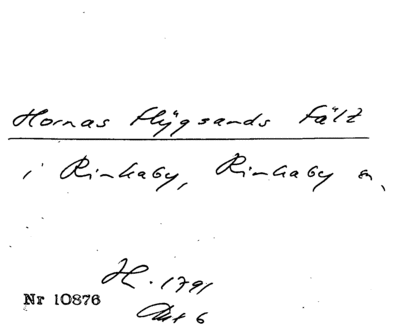 Hornas Flÿgsands Fält
i Rinkaby, Rinkaby sn,
H. 1791
Akt 6
Nr 10876